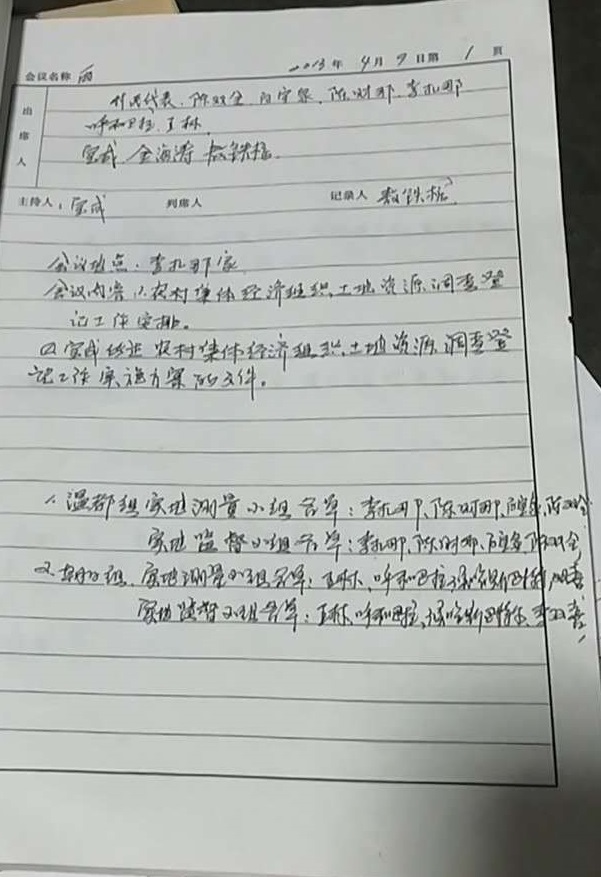 会议名称 2013年4月9日第1页
出席人 村民代表、陈双全、白宝泉、陈对那、李扎那
呼和巴拉、王林
宝成、金海涛、敖铁桩
主持人:宝成 列席人 记录人 敖铁桩
会议地点:李扎那家
会议内容:1、农村集体经济组织、土地资源调查登
记工作安排。
2、宝成传达农村集体经济组织、土地资源调查登
记工作实施方案的文件。
1、温都组实地测量小组名单:李扎那、陈对那、陈双全
实地监督小组名单:李扎那、陈对那、陈双全
2、组、实地测量小组名单:王林、呼和巴拉、双喜
实地监督小组名单:王林、呼和巴拉、李双喜